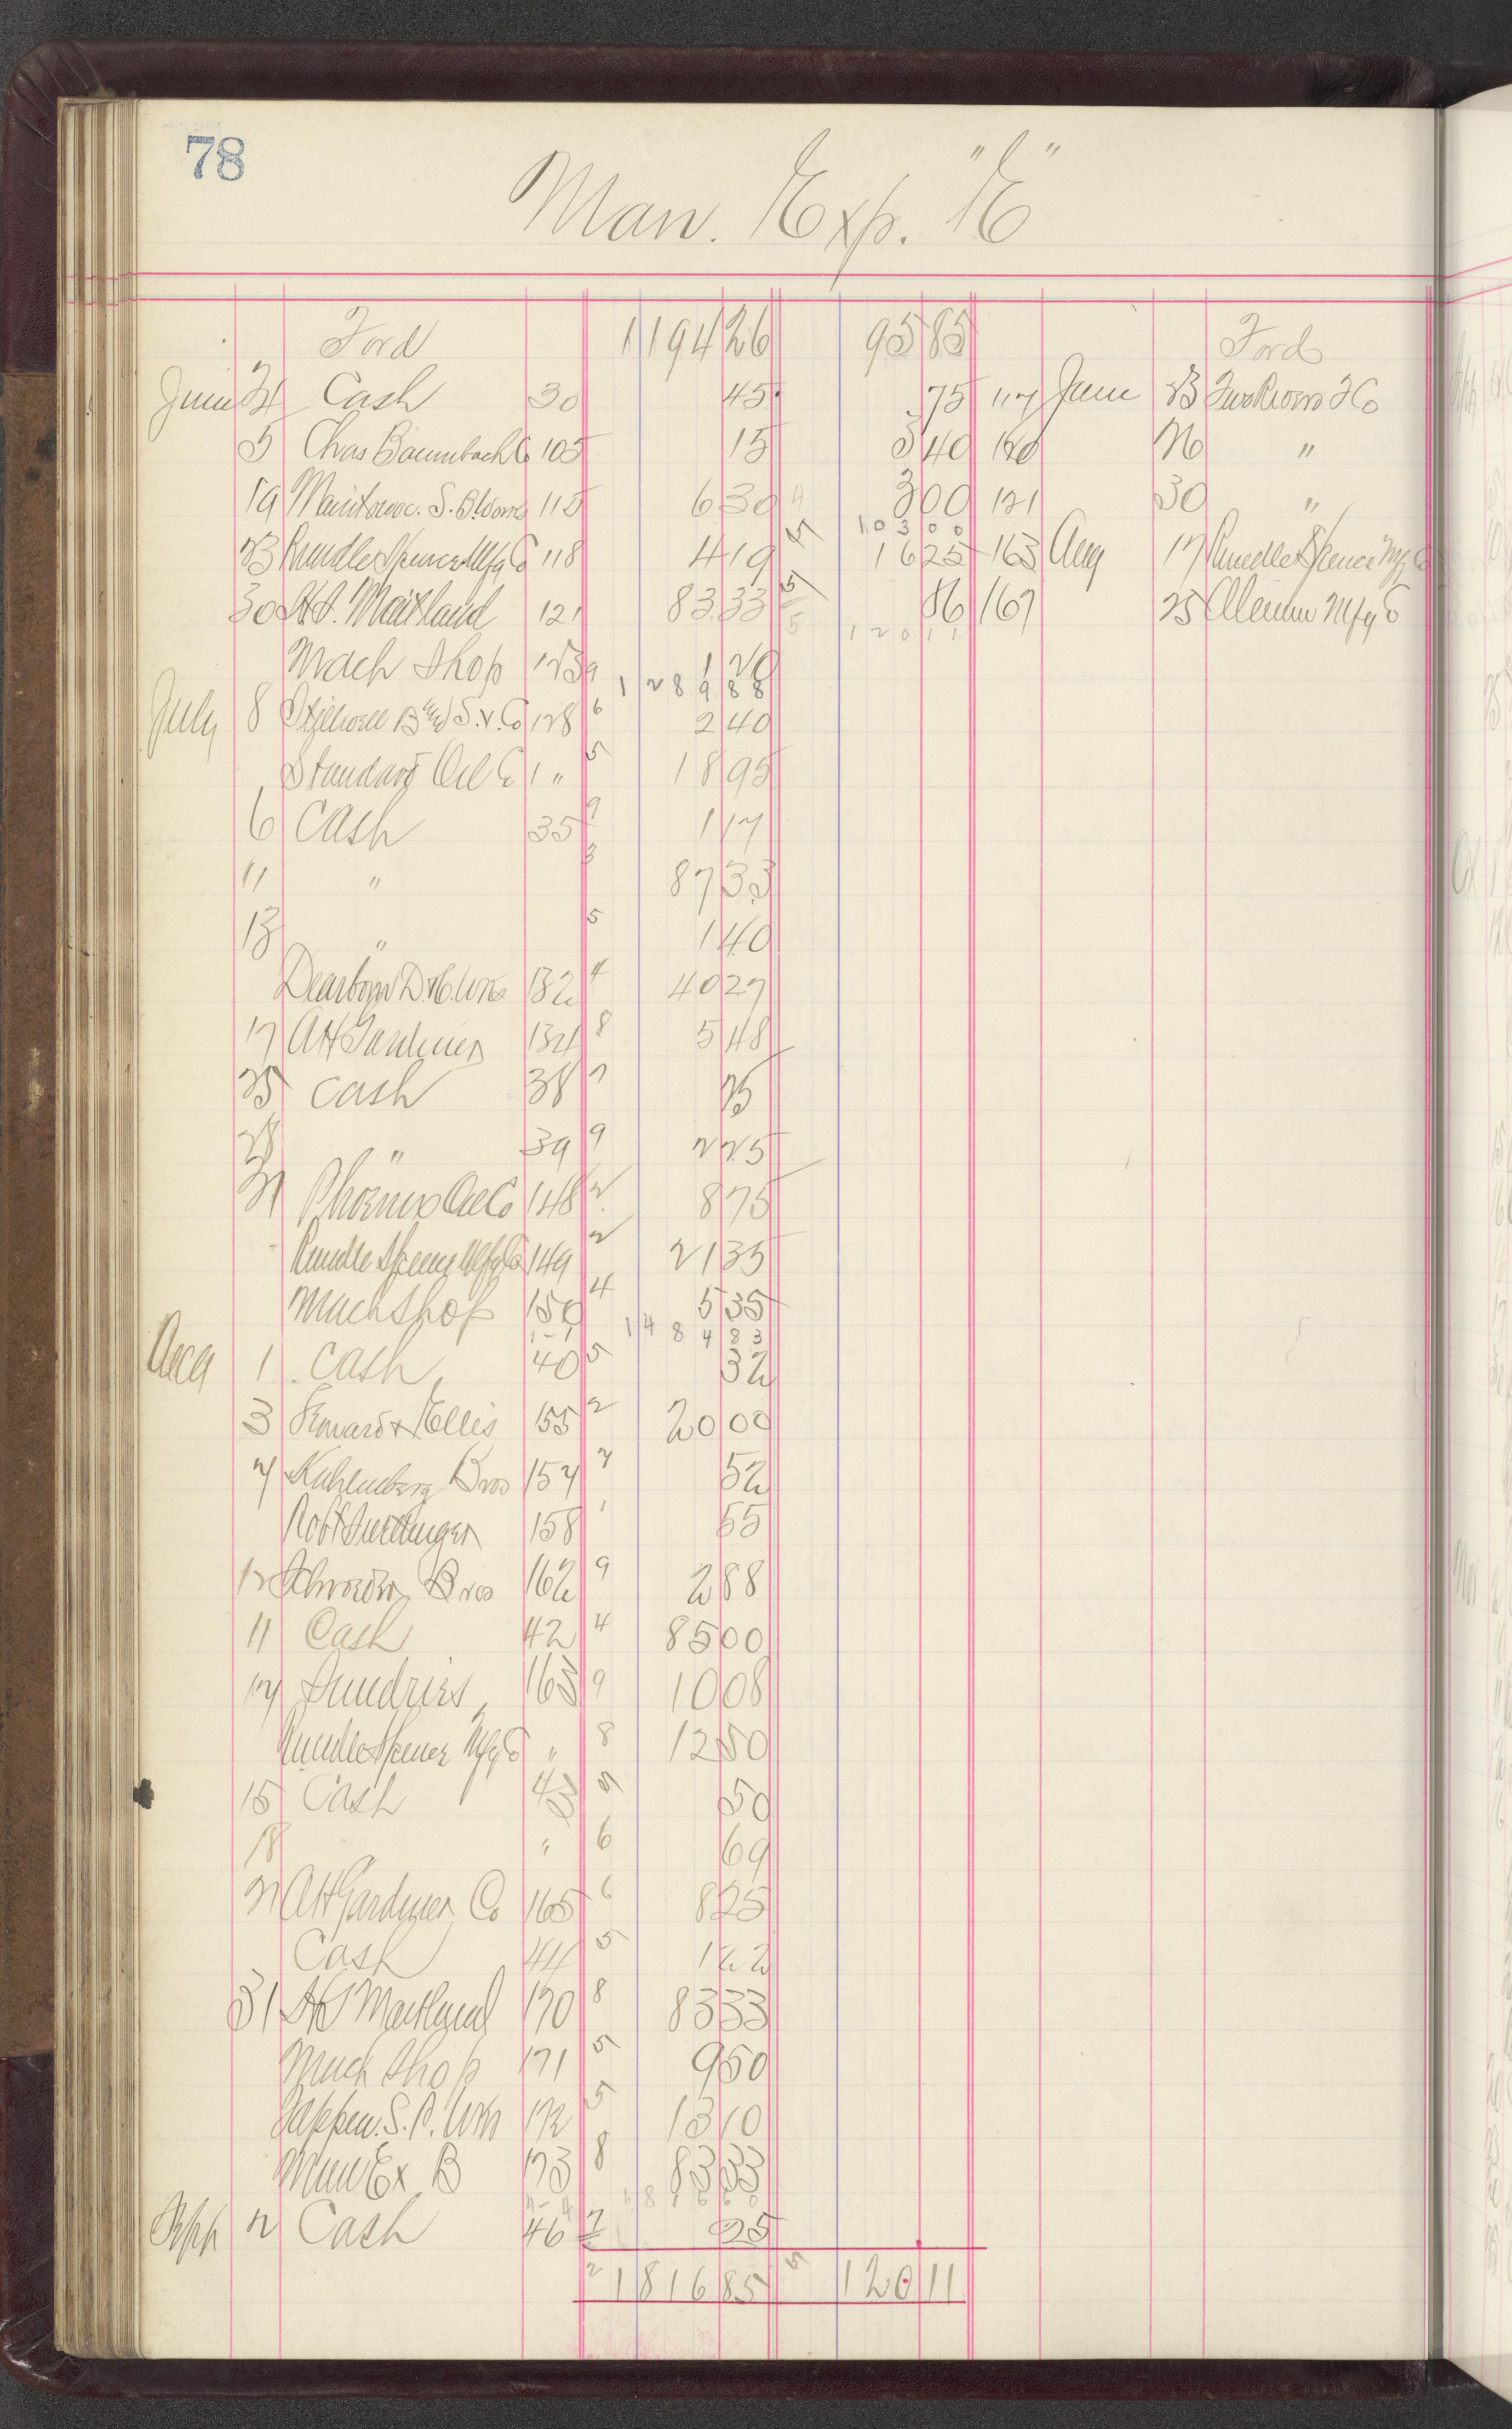 78
Man. Exp. "E"
Ford 1194 26 95 85 Ford
June Cash 30 45 75 117 June 23 Two Rivers
5 Chas Baumbach Co 105 15 5 40 120 26 "
19 Manitowoc. S. B. Works 115 6 30 4 3 00 121 30 "
10 3 0 0
23 Rundle Spence Mfg Co 118 4 19 5 16 25 163 Aug 17 Rundle Spence Mfg Co
30 Maitland 121 83 33 5 86 167 25 Mfg Co
1 2 0 1 1
Mach Shop 123 9 1 20
1 2 8 9 8 8
July 8 Stilwell 128 6 2 40
Standard Oil Co 1 " 5 18 95
6 Cash 35 9 1 17
11 " 3 87 33
13 " 5 1 40
Dearborn D. & C. Wks 132 4 40 27
17 AH Gardner 134 8 5 48
25 Cash 38 7 25
28 " 39 9 2 25
31 Phoenix Oil Co 148 2 8 75
Rundle Spence Mfg Co 149 2 21 35
Mach Shop 150 4 5 35
1 4 8 4 8 3
Aug 1 Cash 40 5 32
3 & Ellis 155 2 20 00
7 Kahlenberg Bros 157 7 52
Robt 158 1 65
12 Schroeder Bros 162 9 2 88
11 Cash 42 4 85 00
17 Sundries 163 9 10 08
Rundle Spence Mfg Co " 8 12 50
15 Cash 43 5 50
18 " 6 69
21 AH Gardner Co 165 6 8 25
Cash 44 5 1 22
31 Maitland 170 8 83 33
Mach Shop 171 5 9 50
Jappen. S. P. Wks 172 5 13 10
Man Ex B 173 8 83 33
1 8 1 6 6 0
Sept 2 Cash 46 7 25
2 1816 85 5 120 11